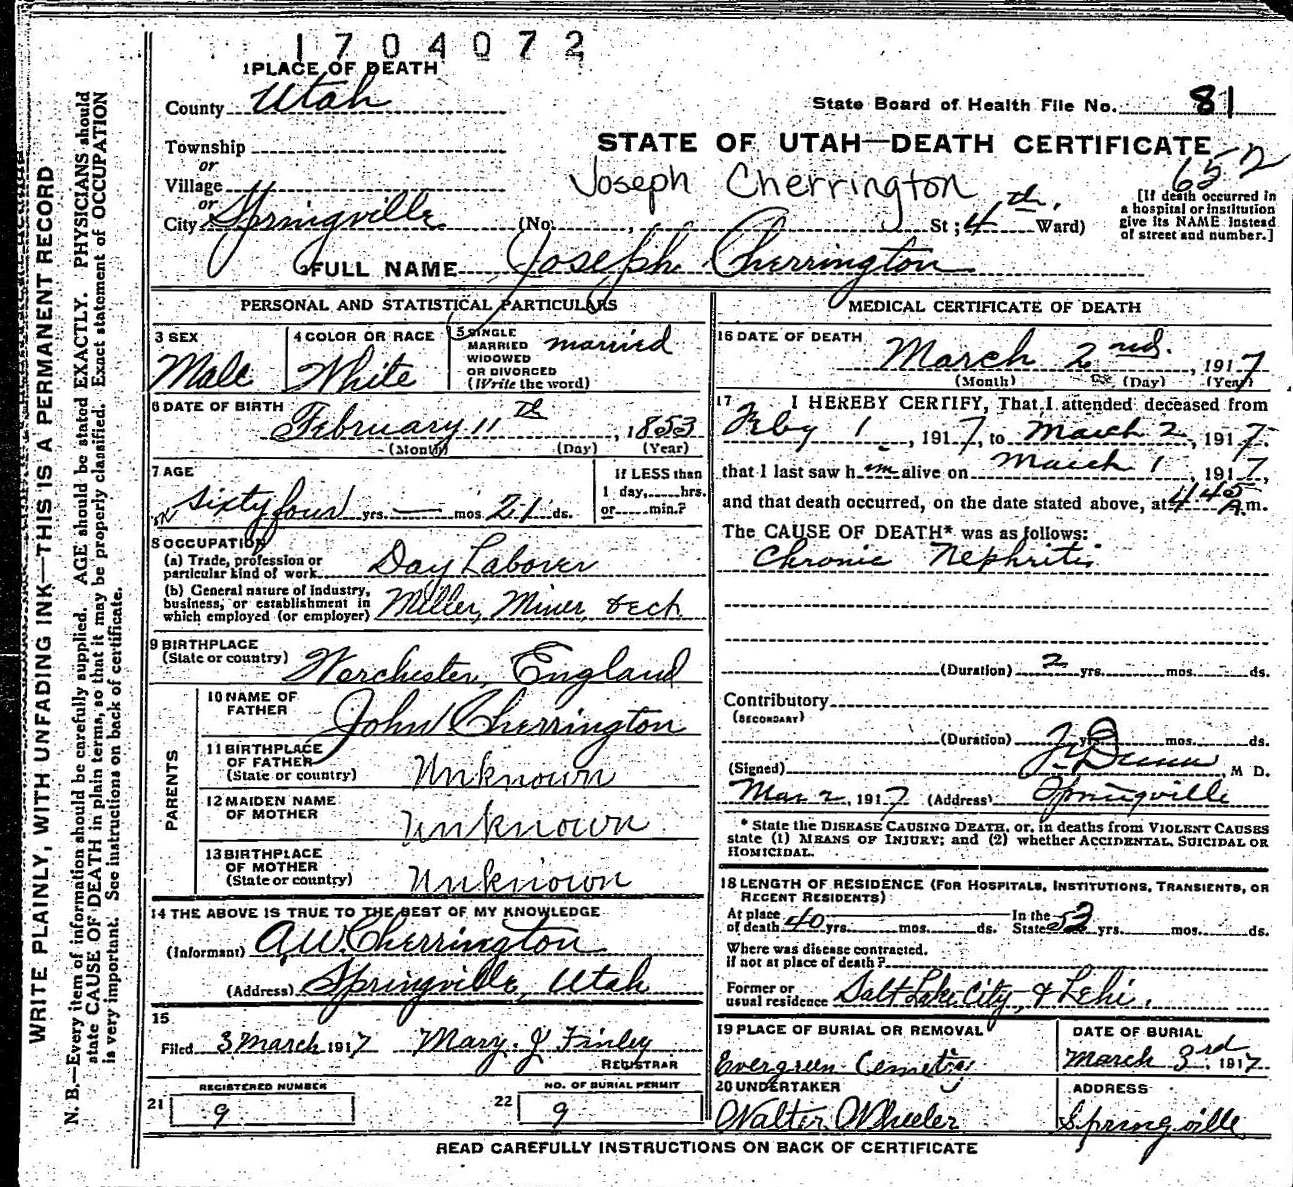 1704072
1 PLACE OF DEATH
County Utah
State Board of Health File No. 81
Township
or
Village
or
City Springville
STATE OF UTAH—DEATH CERTIFICATE
652
Joseph Cherrington
(No. , St; 4th. Ward)
[If death occurred in
a hospital or institution
give its NAME instead
of street and number.]
2 FULL NAME Joseph Cherrington
PERSONAL AND STATISTICAL PARTICULARS
3 SEX
Male
4 COLOR OR RACE
White
5 SINGLE
MARRIED
WIDOWED
OR DIVORCED
(Write the word)
married
6 DATE OF BIRTH
February 11th, 1853
(Month) (Day) (Year)
7 AGE
Sixty four yrs. — mos. 21 ds.
If LESS than
1 day, hrs.
or min.?
8 OCCUPATION
(a) Trade, profession or
particular kind of work Day Laborer
(b) General nature of industry,
business, or establishment in
which employed (or employer) Miller, Miner,
9 BIRTHPLACE
(State or country) Worchester, England
PARENTS
10 NAME OF
FATHER John Cherrington
11 BIRTHPLACE
OF FATHER
(State or country) Unknown
12 MAIDEN NAME
OF MOTHER Unknown
13 BIRTHPLACE
OF MOTHER
(State or country) Unknown
14 THE ABOVE IS TRUE TO THE BEST OF MY KNOWLEDGE
(Informant) A.W. Cherrington
(Address) Springville, Utah
15
Filed 3 March 1917 Mary J Finley
REGISTRAR
REGISTERED NUMBER
21 9
NO. OF BURIAL PERMIT
22 9
MEDICAL CERTIFICATE OF DEATH
16 DATE OF DEATH
March 2nd., 1917
(Month) (Day) (Year)
17 I HEREBY CERTIFY, That I attended deceased from
Feby 1, 1917, to March 2, 1917.
that I last saw him alive on March 1 1917,
and that death occurred, on the date stated above, at 4 45 A.m.
The CAUSE OF DEATH* was as follows:
Chronic Nephritis
(Duration) 2 yrs. mos. ds.
Contributory
(SECONDARY)
(Duration) yrs. mos. ds.
(Signed) Dunn, M D.
Mar 2, 1917 (Address) Springville
* State the DISEASE CAUSING DEATH, or, in deaths from VIOLENT CAUSES
state (1) MEANS OF INJURY; and (2) whether ACCIDENTAL, SUICIDAL OR
HOMICIDAL.
18 LENGTH OF RESIDENCE (FOR HOSPITALS, INSTITUTIONS, TRANSIENTS, OR
RECENT RESIDENTS)
At place
of death 40 yrs. mos. ds. In the
State 53 yrs. mos. ds.
Where was disease contracted.
if not at place of death?
Former or
usual residence Salt Lake City, & Lehi.
19 PLACE OF BURIAL OR REMOVAL
Evergreen Cemetery
DATE OF BURIAL
March 3rd 1917
20 UNDERTAKER
Walter Wheeler
ADDRESS
Springville
READ CAREFULLY INSTRUCTIONS ON BACK OF CERTIFICATE
WRITE PLAINLY, WITH UNFADING INK—THIS IS A PERMANENT RECORD
N. B.—Every item of information should be carefully supplied. AGE should be stated EXACTLY. PHYSICIANS should
state CAUSE OF DEATH in plain terms, so that it may be properly classified. Exact statement of OCCUPATION
is very important. See instructions on back of certificate.